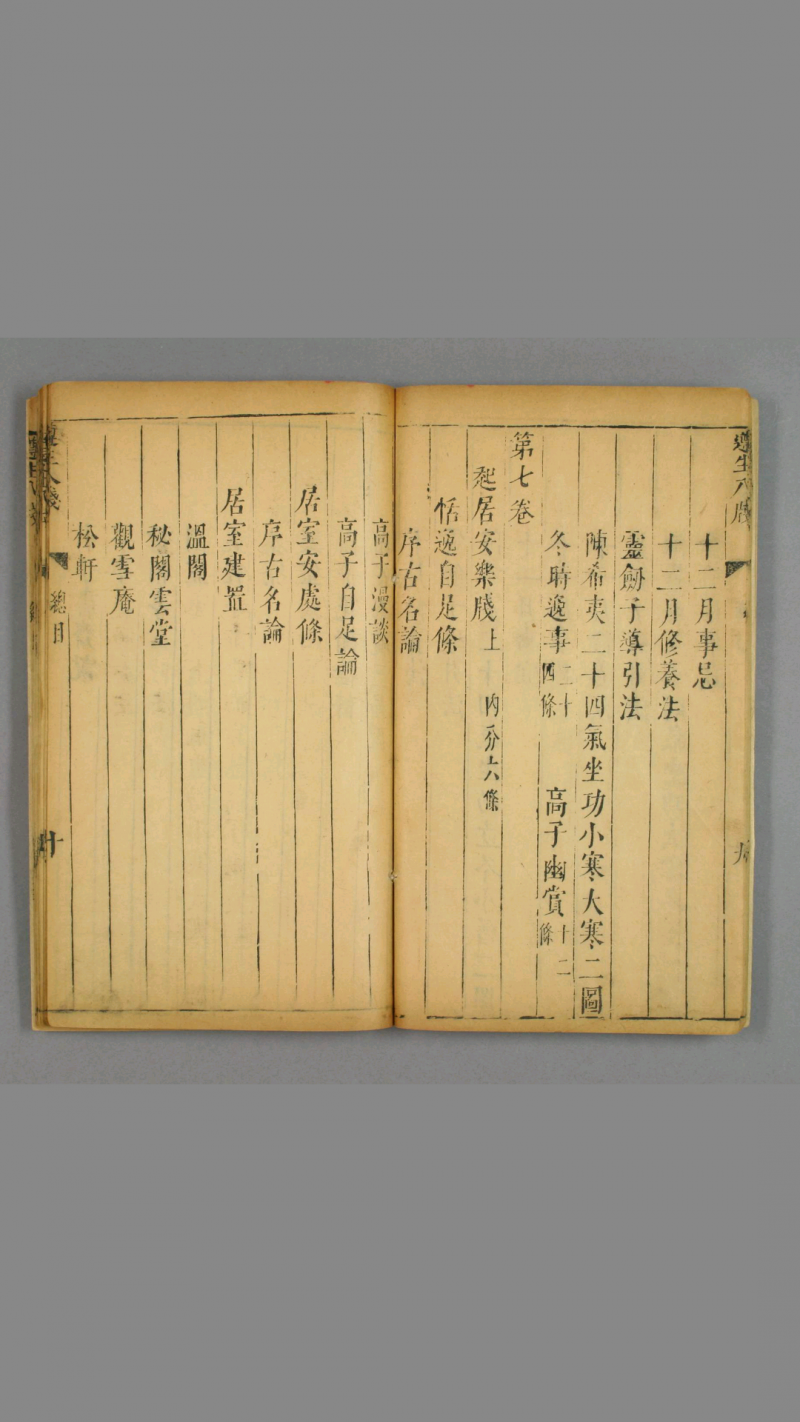 遵生八牋
九
十二月事忌
十二月修養法
靈劒子導引法
陳希夷二十四氣坐功小寒大寒二圖
冬時逸事二十四條 高子幽賞十二條
第七卷
起居安樂牋上 內分六條
恬逸自足條
序古名論
高子漫談
高子自足論
居室安處條
序古名論
居室建置
溫閣
秘閣雲堂
觀雪庵
松軒
總目
十